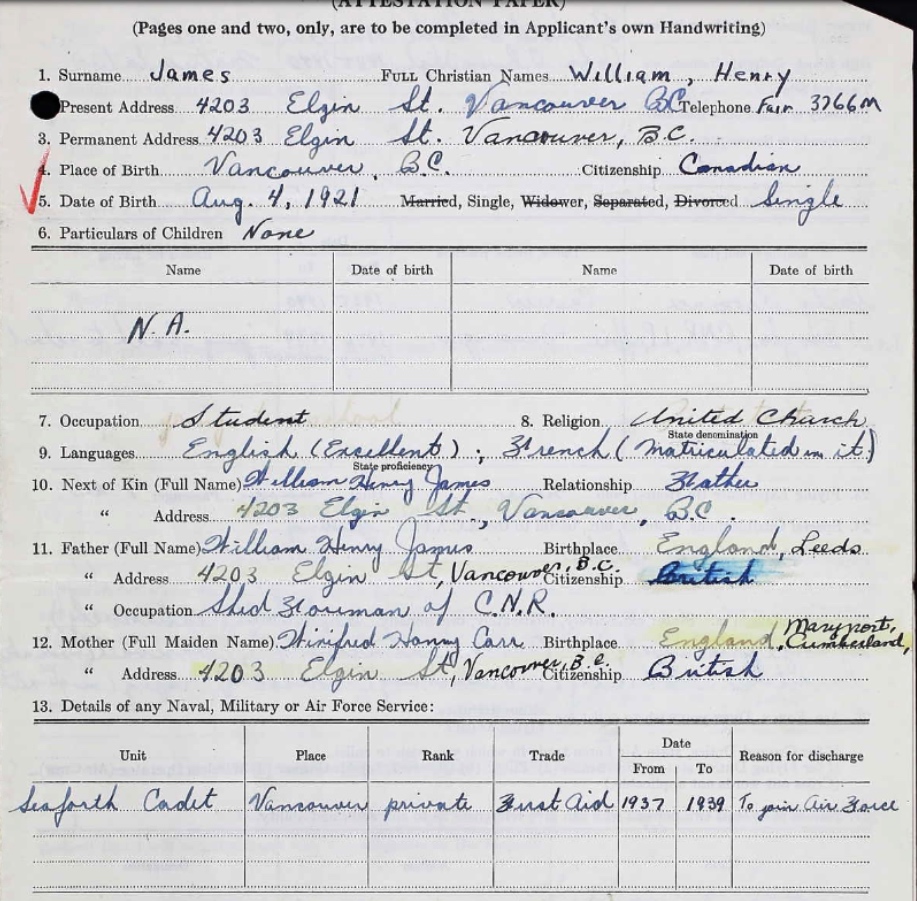 (ATTESTATION PAPER)
(Pages one and two, only, are to be completed in Applicant's own Handwriting)
1. Surname James FULL Christian Names William, Henry
Present Address 4203 Elgin St. Vancouver BC Telephone Fair 3766M
3. Permanent Address 4203 Elgin St. Vancouver, B.C.
4. Place of Birth Vancouver, B.C. Citizenship Canadian
5. Date of Birth Aug. 4, 1921 Married, Single, Widower, Separated, Divorced Single
6. Particulars of Children None
Name Date of birth Name Date of birth
N.A.
7. Occupation Student 8. Religion United Church
State denomination
9. Languages English (Excellent); French (Matriculated in it)
State proficiency
10. Next of Kin (Full Name) William Henry James Relationship Father
" Address 4203 Elgin St., Vancouver, B.C.
11. Father (Full Name) William Henry James Birthplace England, Leeds
" Address 4203 Elgin St, Vancouver, B.C. Citizenship British
" Occupation Shed Floorman of C.N.R.
12. Mother (Full Maiden Name) Winifred Carr Birthplace England, Maryport, Cumberland,
" Address 4203 Elgin St, Vancouver, B.C. Citizenship British
13. Details of any Naval, Military or Air Force Service:
Unit Place Rank Trade Date Reason for discharge
From To
Seaforth Cadet Vancouver private First Aid 1937 1939 To join Air Force